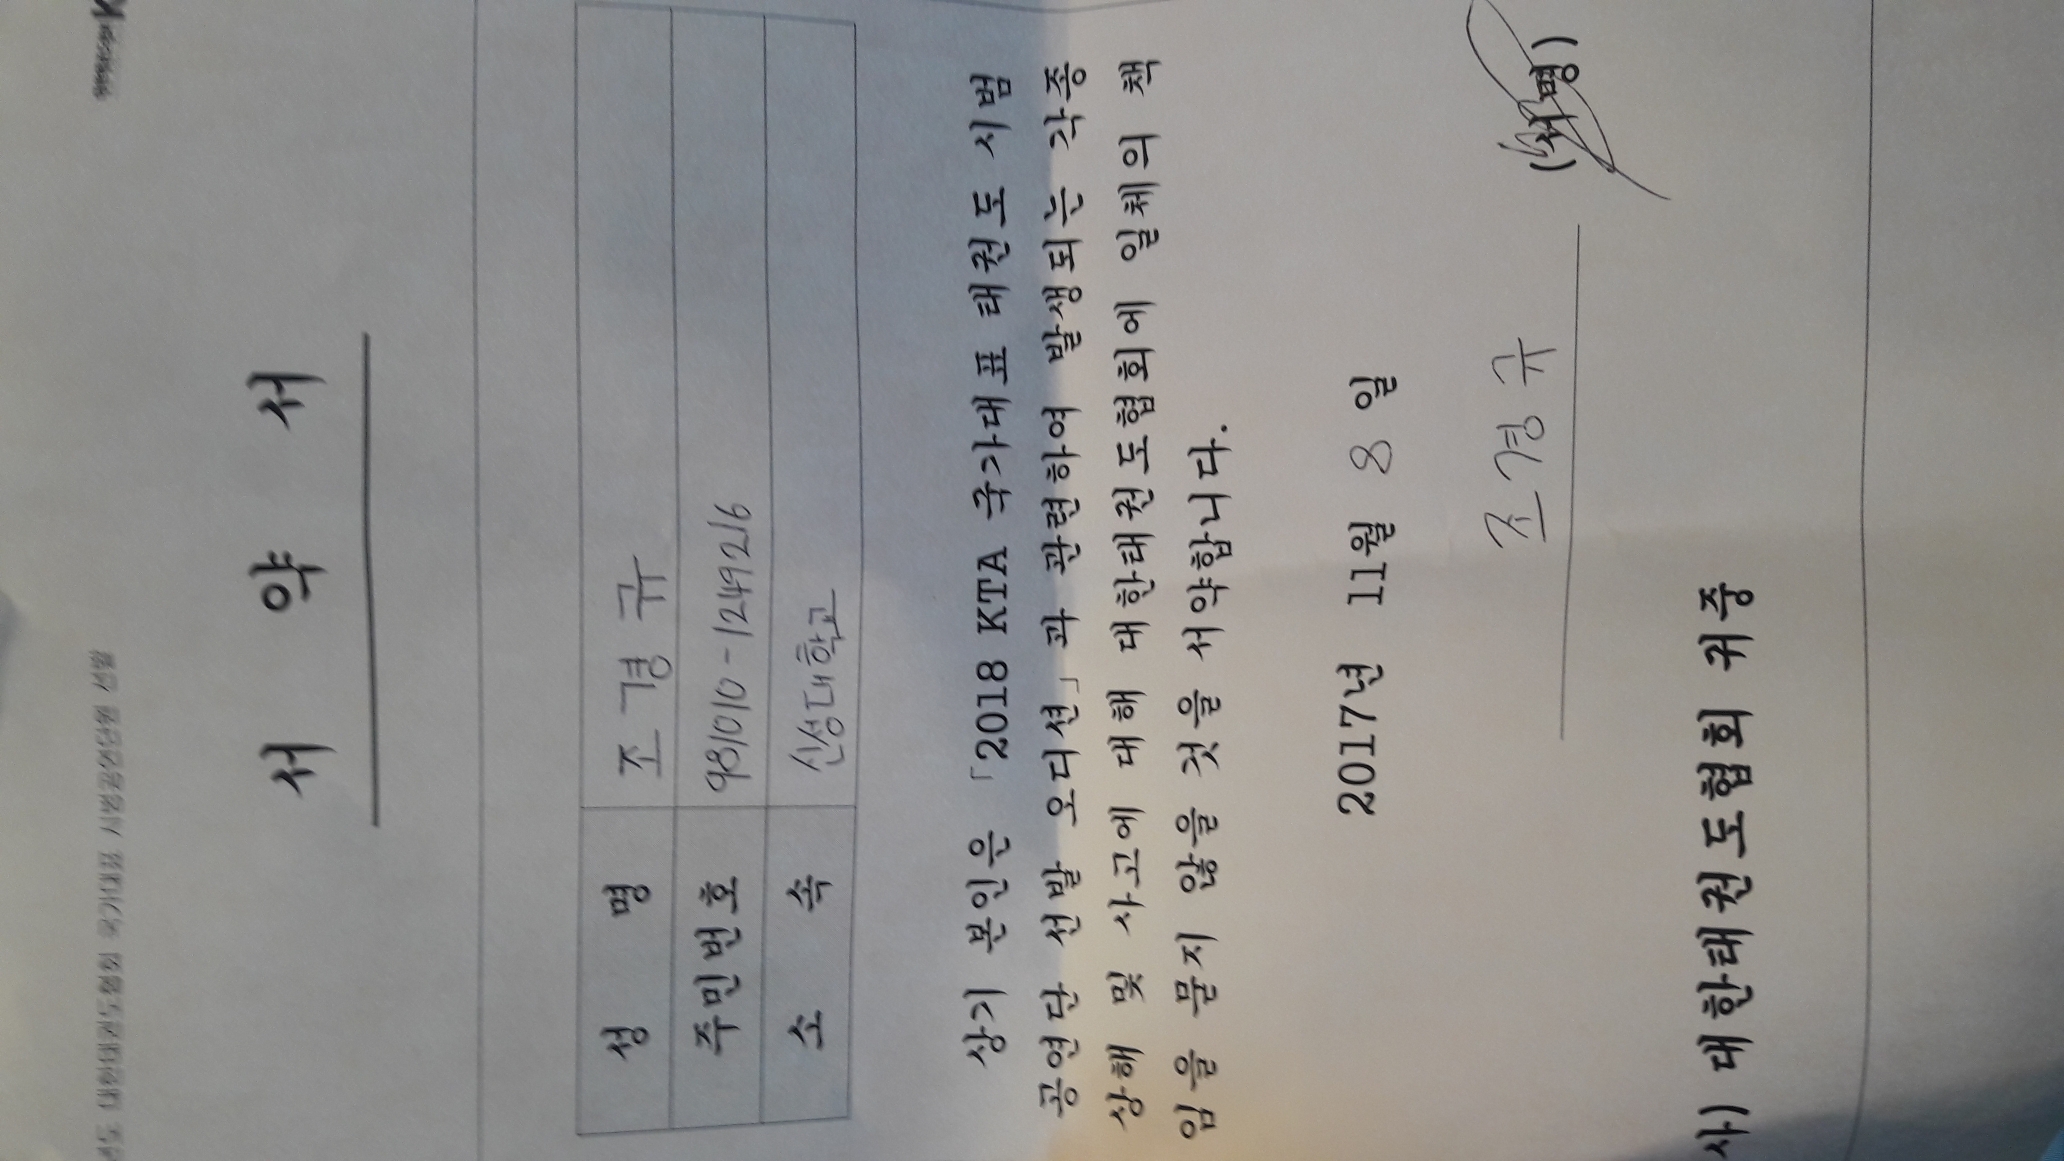 대한태권도협회 국가대표 시범공연단원 선발
서 약 서
성 명 조경규
주민번호 981010-1249216
소 속 신성대학교
상기 본인은 「2018 KTA 국가대표 태권도 시범
공연단 선발 오디션」과 관련하여 발생되는 각종
상해 및 사고에 대해 대한태권도협회에 일체의 책
임을 묻지 않을 것을 서약합니다.
2017년 11월 8일
조경규 (서명)
사) 대한태권도협회 귀중